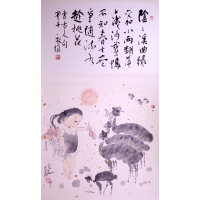 陰々溪曲綠
交加小雨翻萍
上淺沙鵝鴨
不知春去盡
爭隨流水
趁桃花
書古人句